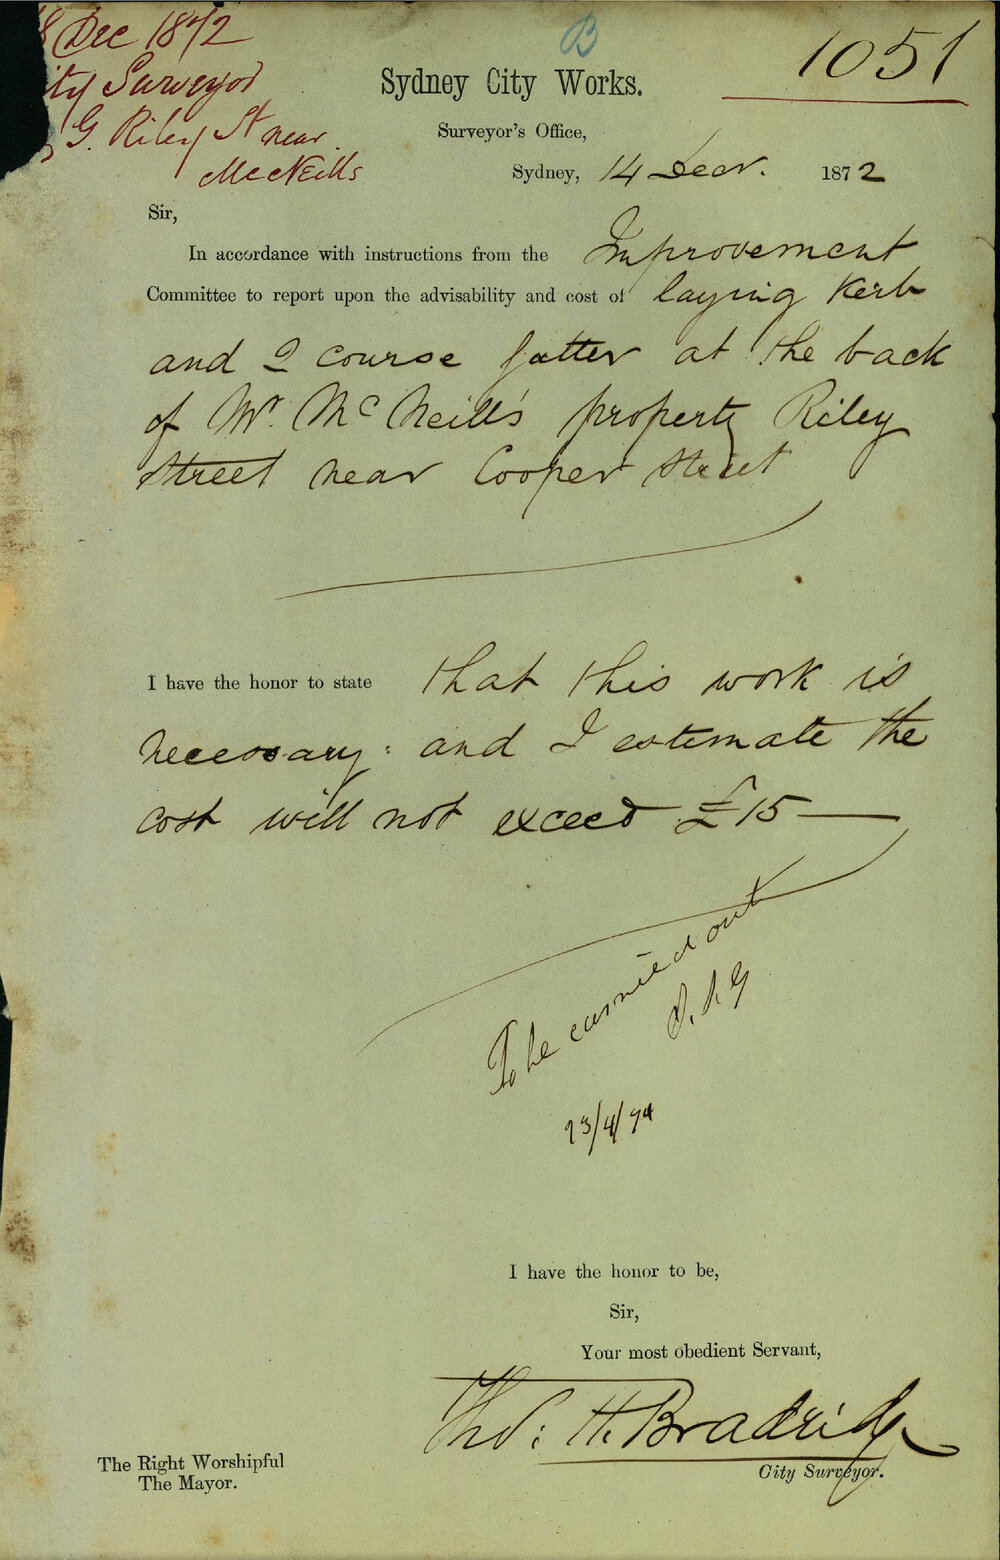 8 Dec 1872
ity Surveyor
G. Riley St near
McNeills
B
1051
Sydney City Works.
Surveyor's Office,
Sydney, 14 Decr. 1872
Sir,
In accordance with instructions from the Improvement
Committee to report upon the advisability and cost of laying Kerb
and 2 course gutter at the back
of Mr. McNeill's property Riley
Street near Cooper Street
I have the honor to state that this work is
necessary: and I estimate the
cost will not exceed £15
To be carried out
23/4/74
I have the honor to be,
Sir,
Your most obedient Servant,
Thos: H. Bradridge
City Surveyor.
The Right Worshipful
The Mayor.